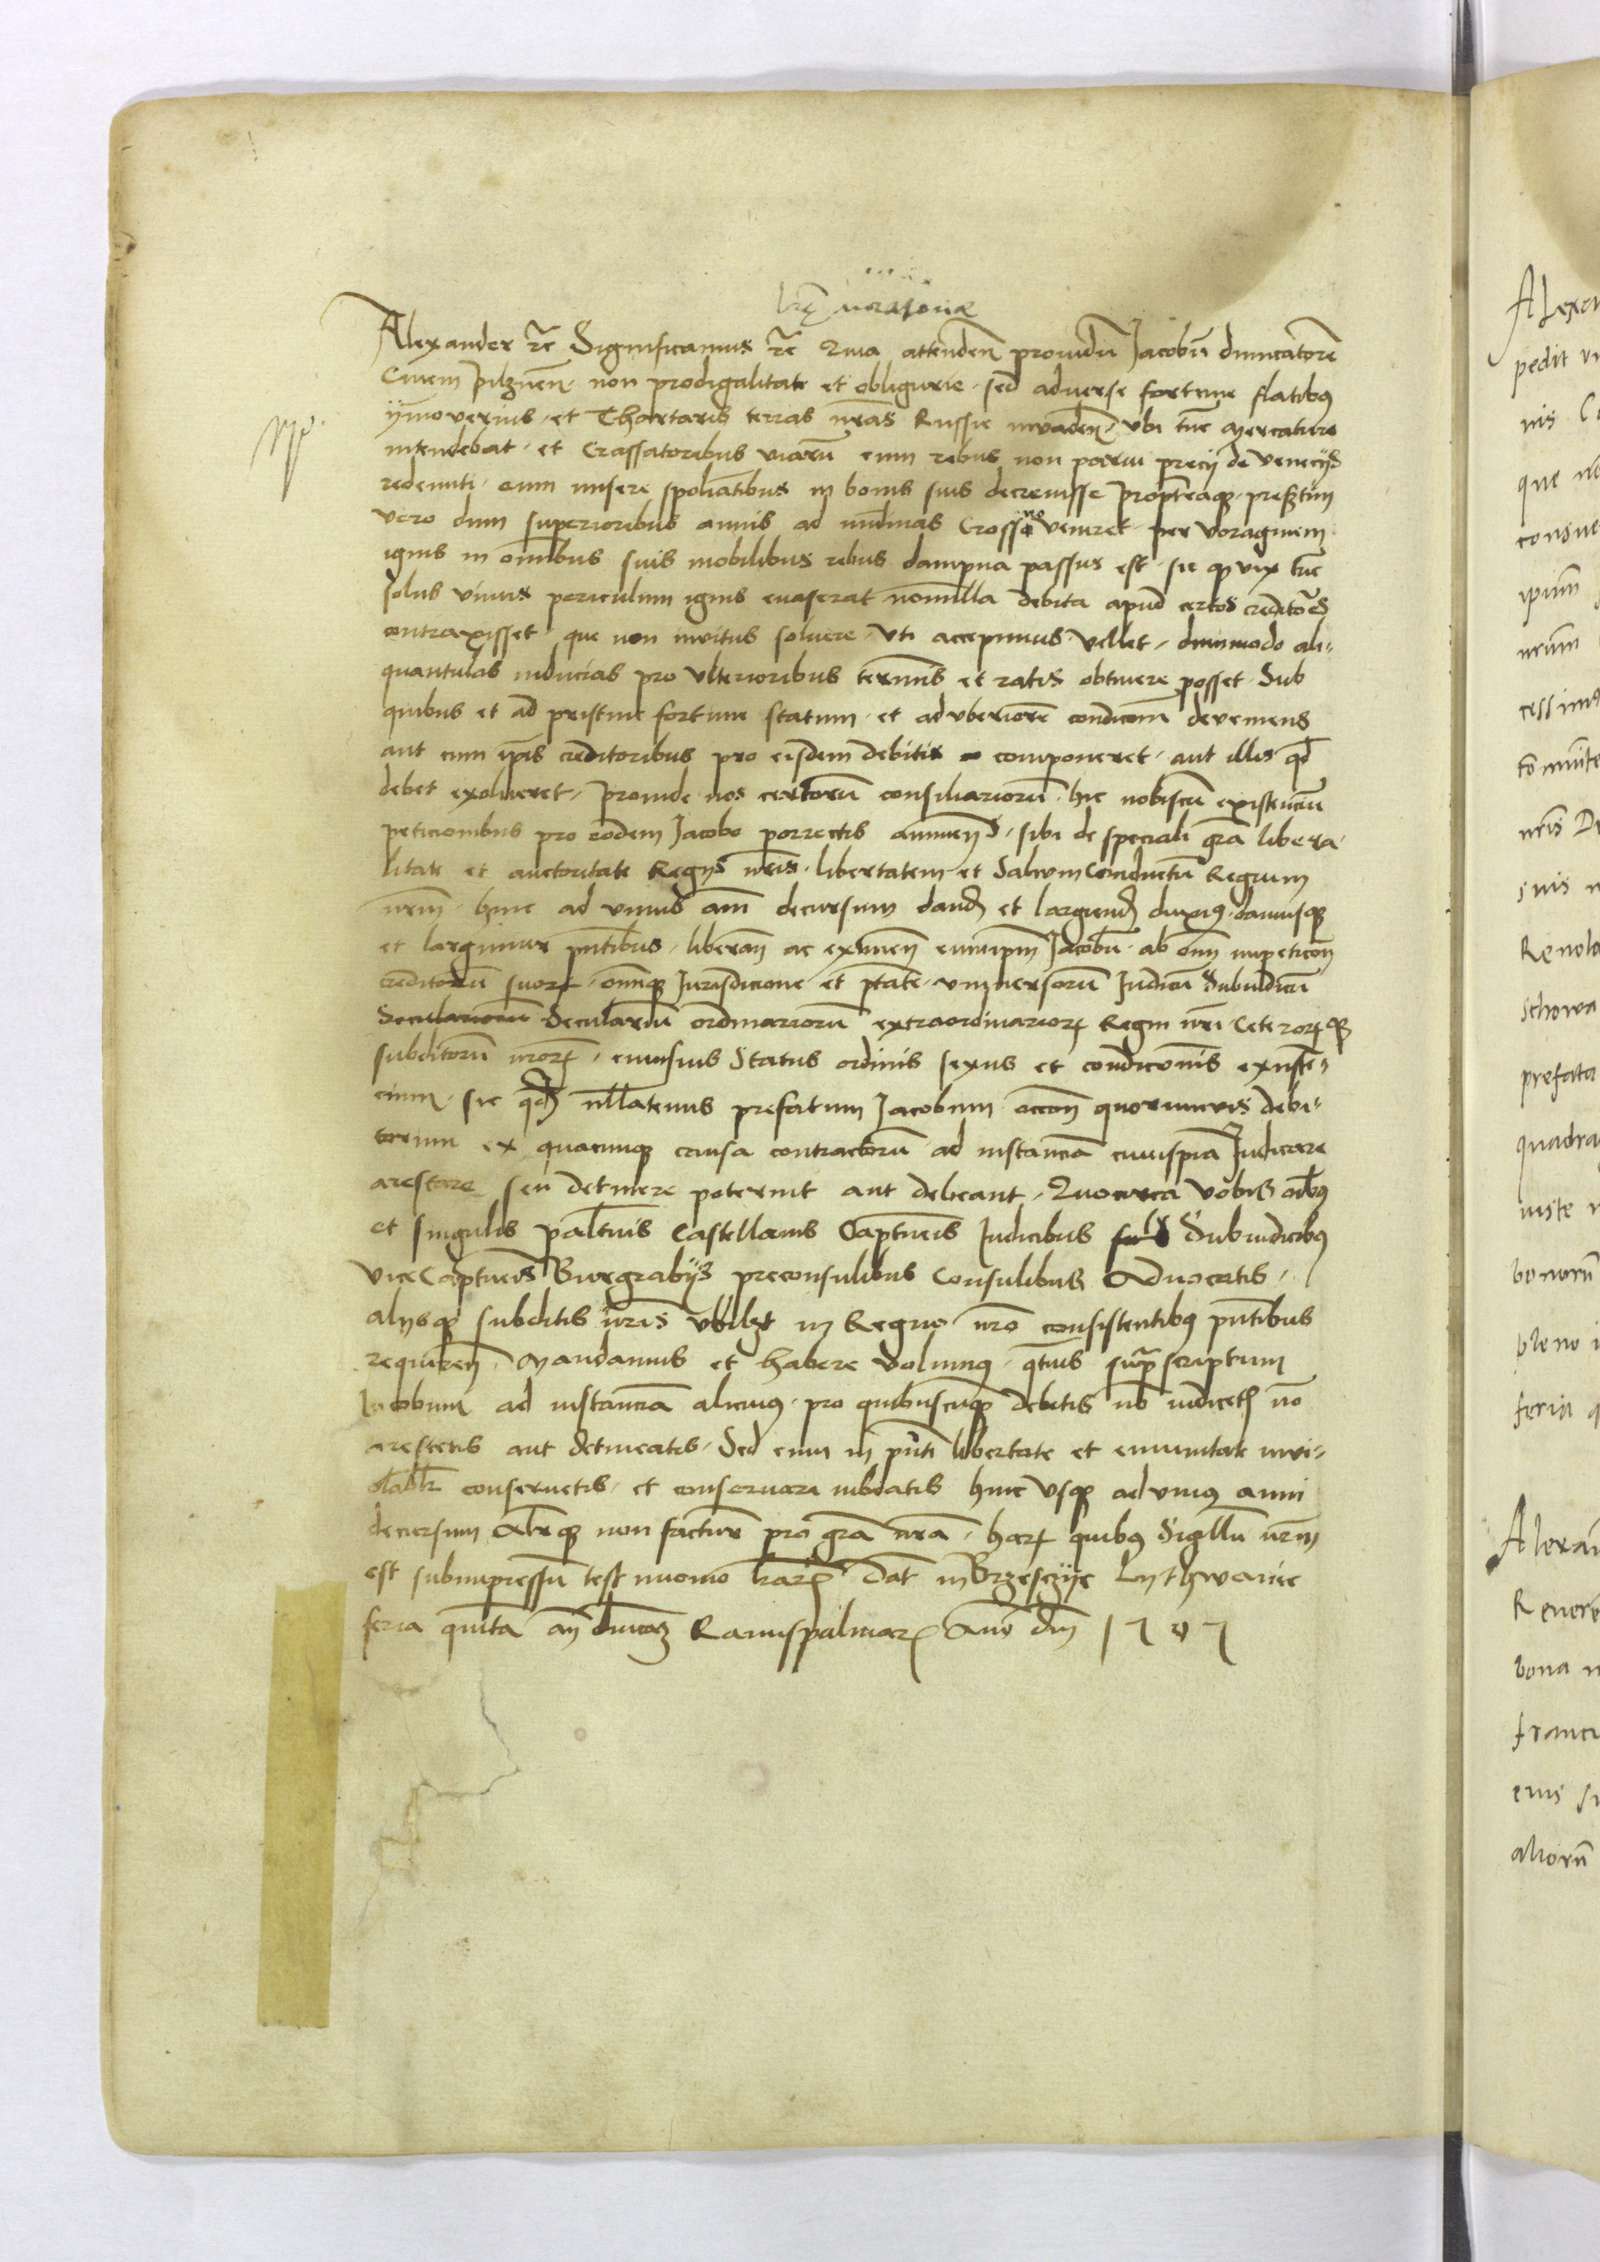 Alexander etc Significamus etc Quia attenden providu Jacobu
Civem pilznen · non prodigalitate et obligurie · sed adverse fortune flatibus
ymoverius · et Thartaris terras nras Russie invaden · ubi tuc mercature
intendebat · et Crassatoribus viaru cum rebus non parvi precij de Venecijs
redeunti · eum misere spoliatibus in bonis suis decrevisse propteaque · presertim
vero dum superioribus annis ad nudinas veniret per voraginem
ignis in omibus suis mobilibus rebus dampna passus est · sic q vix tuc
solus vivus periculum ignis evaserat nonnulla debita apud certos creditores
contraxisset · que non invitus solvere · uti accepimus vellet · dummodo ali-
quantulas inducias pro ulterioribus terminis et ratis obtinere posset · Sub
quibus et ad pristine fortune statum · et ad uberiore condicom deveniens
aut cum ipis creditoribus pro eisdem debitis componeret · aut illis qd
debet exolveret · proinde nos certoru consiliarioru · hic nobiscu existenciu
peticionibus pro eodem Jacobo porrectis annuen · sibi de speciali gra libera-
litate et auctoritate Regijs nris · libertatem et Salvum Conductu Regium
nrm · hinc ad unius ani decursum dand et largiend duximus · damusque
et largimur pntibus · liberan ac eximen eumipm Jacobu · ab omi impeticon
creditoru suor · omique Jurisdicione et ptate · universoru Judicu Subiudicu
Seculariu ordinarioru extraordinarior Regni nri Ceteror q
subditoru nror · cuiusvis Status ordinis sexus et condiconis existen-
cium · sic qd nullatenus prefatum Jacobum occon quorumvis debi-
torum ex quacunque causa contractoru ad instancia cuiuspia Judicare
arestare seu detinere poterint aut debeant · Quocirca vobis oibus
et singulis paltinis Castellanis Captneis Judicibus Subiudicibus
ViceCaptneis Burgrabijs preconsulibus Consulibus Advocatis
alijsque subditis nris ubilzt in Regno nro consistentibus pntibus
requiren · Mandamus et habere volumus · qtnus suprascriptum
Jacobum ad instancia alicuius · pro quibuscuque debitis no iudicetis no
arestetis aut detineatis · Sed eum in pnti libertate et emunitate invi-
olablr conservetis · et conservari iubeatis hinc usque ad unius anni
decursum Alrque non factur pro gra nra · har quibus Sigillu nrm
est subimpressu test mvonio lrar Dat in Brzesczije Lythwanie
feria quinta an dnicaz Ramispalmar Anno dni 1505